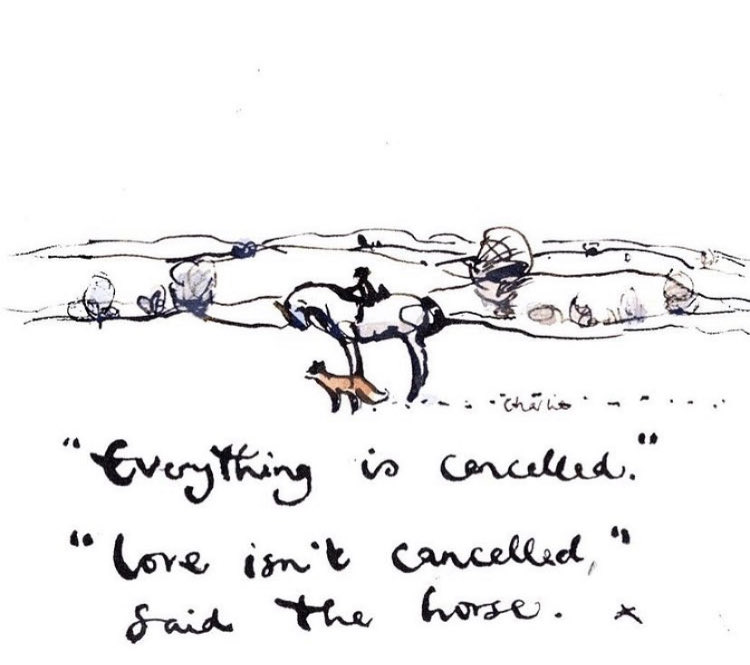 Charlie
"Everything is cancelled."
"Love isn't cancelled,"
said the horse. x